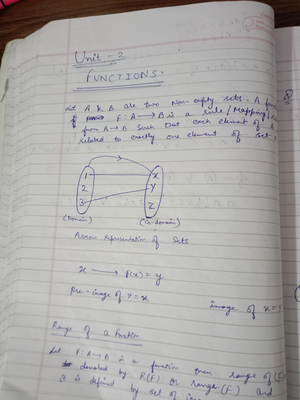 Unit - 2
FUNCTIONS -
Let A & B are two Non-empty sets. A
F: A → B is a rule / Mapping /
from A → B such that each element of
related to exactly one element of set
1 x
2 y
3 z
(Domain) (Co-domain)
Arrow Representation of Sets
x → f(x) = y
Pre-image of Y = x. image of x =
Range of a Function
Let F: A → B is a function then range of (F)
denoted by R(F) or range (F) and
it is defined by set of